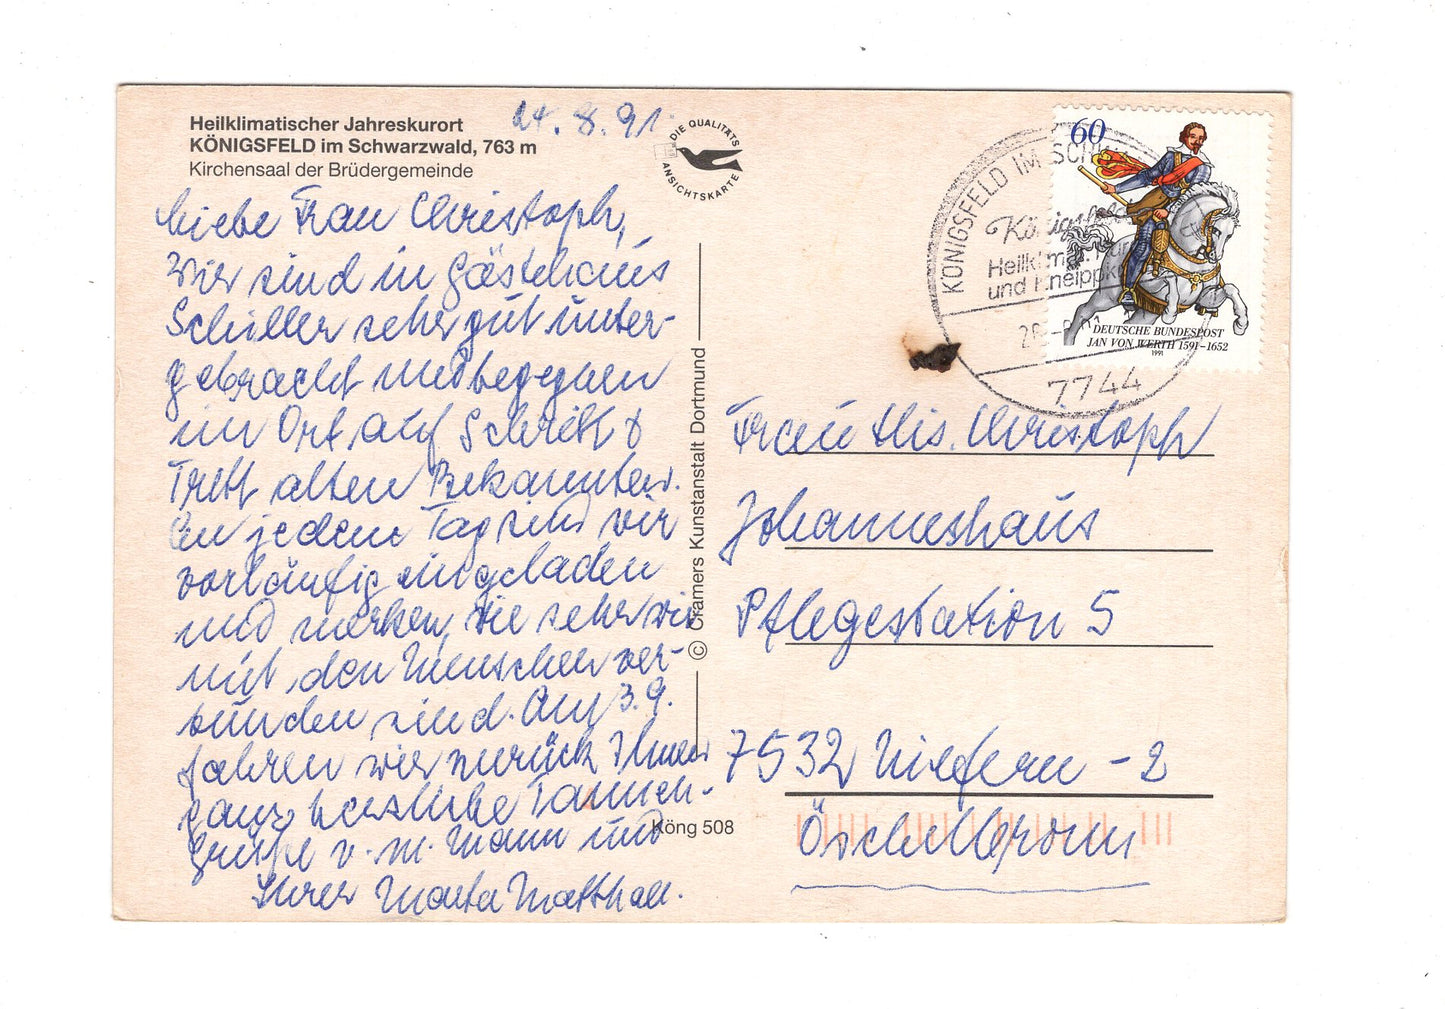 Heilklimatischer Jahreskurort
KÖNIGSFELD im Schwarzwald, 763 m
Kirchensaal der Brüdergemeinde
24. 8. 91
DIE QUALITÄTS
ANSICHTSKARTE
Liebe Frau Christoph,
Wir sind in Gästehaus
Schiller sehr gut unter-
gebracht und begegnen
im Ort auf Schritt &
Tritt alten Bekannten.
An jedem Tag sind wir
vorläufig eingeladen
und merken, wie sehr wir
mit den Menschen ver-
bunden sind. Am 3.9.
fahren wir zurück Ihnen
ganz herzliche
Grüße v. m. Mann und
Ihrer Marta Matthae.
© Cramers Kunstanstalt Dortmund
Köng 508
KÖNIGSFELD IM SCHW
Königsfeld
Heilklimat. Kur
und Kneippku
7744
60
DEUTSCHE BUNDESPOST
JAN VON WERTH 1591–1652
1991
Frau Christoph
Johanneshaus
Pflegestation 5
7532 Niefern - 2
Öschelbronn